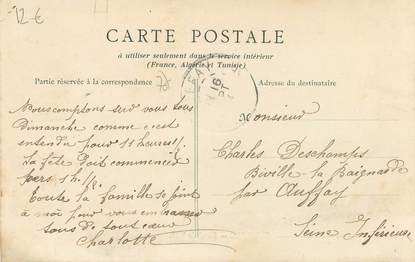 12 €
CARTE POSTALE
à utiliser seulement dans le service intérieur
(France, Algérie et Tunisie)
Partie réservée à la correspondance
Adresse du destinataire
Nous comptons sur vous tous
Dimanche comme c'est
entendu pour 11 heures 1/2
la fête doit commencer
vers 1 h. 1/2
Toute la famille se joint
à moi pour vous embrasser
tous de tout cœur
Charlotte
Monsieur
Charles Deschamps
Biville-la-Baignarde
par Auffay
Seine Inférieure